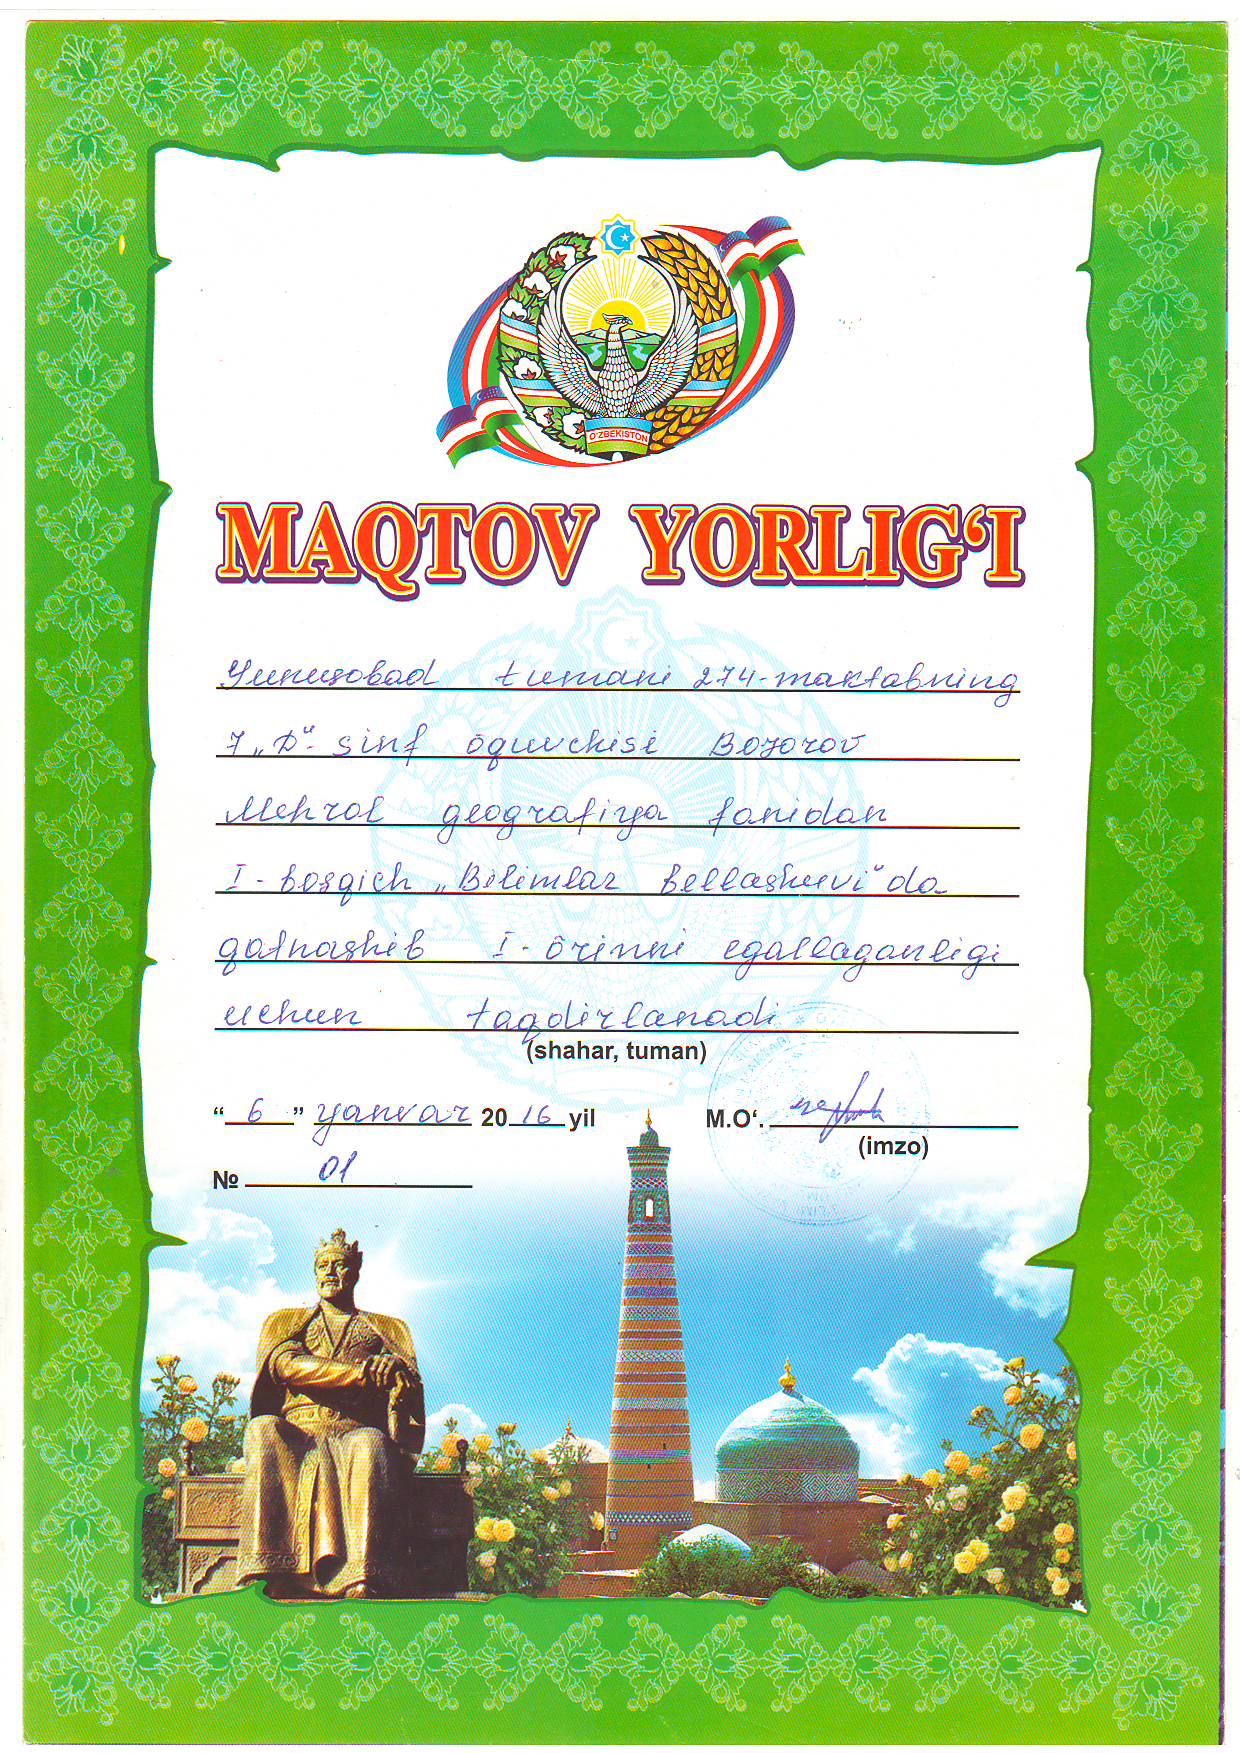 O'ZBEKISTON
MAQTOV YORLIG‘I
Yunusobad tumani 274-maktabning
7 „D“- sinf ôquvchisi Bozorov
Mehrol geografiya fanidan
I - bosqich „Bilimlar bellashuvi“da
qatnashib I - ôrinni egallaganligi
uchun taqdirlanadi
(shahar, tuman)
“ 6 ” yanvar 2016 yil M.O‘.
(imzo)
№ 01